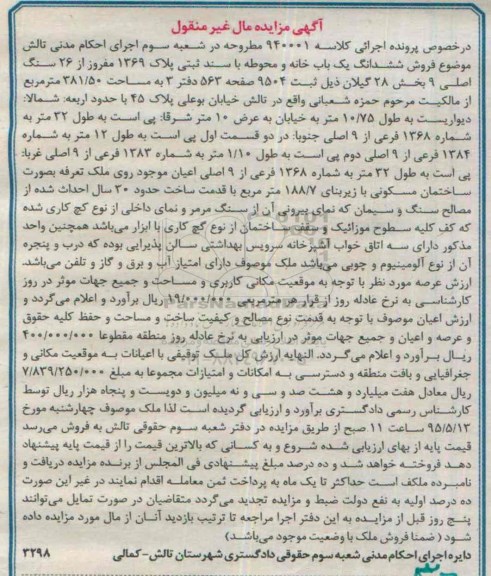 آگهی مزایده مال غیر منقول
درخصوص پرونده اجرائی کلاسه ۹۴۰۰۰۱ مطروحه در شعبه سوم اجرای احکام مدنی تالش
موضوع فروش ششدانگ یک باب خانه و محوطه با سند ثبتی پلاک ۱۳۶۹ مفروز از ۲۶ سنگ
اصلی ۹ بخش ۲۸ گیلان ذیل ثبت ۹۵۰۴ صفحه ۵۶۳ دفتر ۳ به مساحت ۳۸۱/۵۰ مترمربع
از مالکیت مرحوم حمزه شعبانی واقع در تالش خیابان بوعلی پلاک ۴۵ با حدود اربعه: شمالا:
دیواریست به طول ۱۰/۷۵ متر به خیابان به عرض ۱۰ متر شرقا: پی است به طول ۳۲ متر به
شماره ۱۳۶۸ فرعی از ۹ اصلی جنوبا: در دو قسمت اول پی است به طول ۱۲ متر به شماره
۱۳۸۴ فرعی از ۹ اصلی دوم پی است به طول ۱/۱۰ متر به شماره ۱۳۸۳ فرعی از ۹ اصلی غربا:
پی است به طول ۳۲ متر به شماره ۱۳۶۸ فرعی از ۹ اصلی اعیان موجود روی ملک تعرفه بصورت
ساختمان مسکونی با زیربنای ۱۸۸/۷ متر مربع با قدمت ساخت حدود ۳۰ سال احداث شده از
مصالح سنگ و سیمان که نمای بیرونی آن از سنگ مرمر و نمای داخلی از نوع کچ کاری شده
که کف کلیه سطوح موزائیک و سقف ساختمان از نوع کچ کاری با ابزار می‌باشد همچنین واحد
مذکور دارای سه اتاق خواب آشپزخانه سرویس بهداشتی سالن پذیرایی بوده که درب و پنجره
آن از نوع آلومینیوم و چوبی می‌باشد ملک موصوف دارای امتیاز آب و برق و گاز و تلفن می‌باشد.
ارزش عرصه مورد نظر با توجه به موقعیت مکانی کاربری و مساحت و جمیع جهات موثر در روز
کارشناسی به نرخ عادله روز از قرار هر مترمربعی ۱۹/۰۰۰/۰۰۰ ریال برآورد و اعلام می‌گردد و
ارزش اعیان موصوف با توجه به قدمت نوع مصالح و کیفیت ساخت و مساحت و حفظ کلیه حقوق
و عرصه و اعیان و جمیع جهات موثر در ارزیابی به نرخ عادله روز منطقه مقطوعا ۴۰۰/۰۰۰/۰۰۰
ریال برآورد و اعلام می‌گردد. النهایه ارزش کل ملک توقیفی با اعیانات به موقعیت مکانی و
جغرافیایی و بافت منطقه و دسترسی به امکانات و امتیازات مجموعا به مبلغ ۷/۸۳۹/۲۵۰/۰۰۰
ریال معادل هفت میلیارد و هشت صد و سی و نه میلیون و دویست و پنجاه هزار ریال توسط
کارشناس رسمی دادگستری برآورد و ارزیابی گردیده است لذا ملک موصوف چهارشنبه مورخ
۹۵/۵/۱۳ ساعت ۱۱ صبح از طریق مزایده در دفتر شعبه سوم حقوقی تالش به فروش می‌رسد
قیمت پایه از بهای ارزیابی شده شروع و به کسانی که بالاترین قیمت را از قیمت پایه پیشنهاد
دهد فروخته خواهد شد و ده درصد مبلغ پیشنهادی فی المجلس از برنده مزایده دریافت و
نامبرده ملکف است حداکثر تا یک ماه به پرداخت ثمن معامله اقدام نمایند در غیر این صورت
ده درصد اولیه به نفع دولت ضبط و مزایده تجدید می‌گردد متقاضیان در صورت تمایل می‌توانند
پنج روز قبل از مزایده به این دفتر اجرا مراجعه تا ترتیب بازدید آنان از مال مورد مزایده داده
شود ( ضمنا فروش ملک با وضعیت موجود می‌باشد)
دایره اجرای احکام مدنی شعبه سوم حقوقی دادگستری شهرستان تالش-کمالی ۳۲۹۸